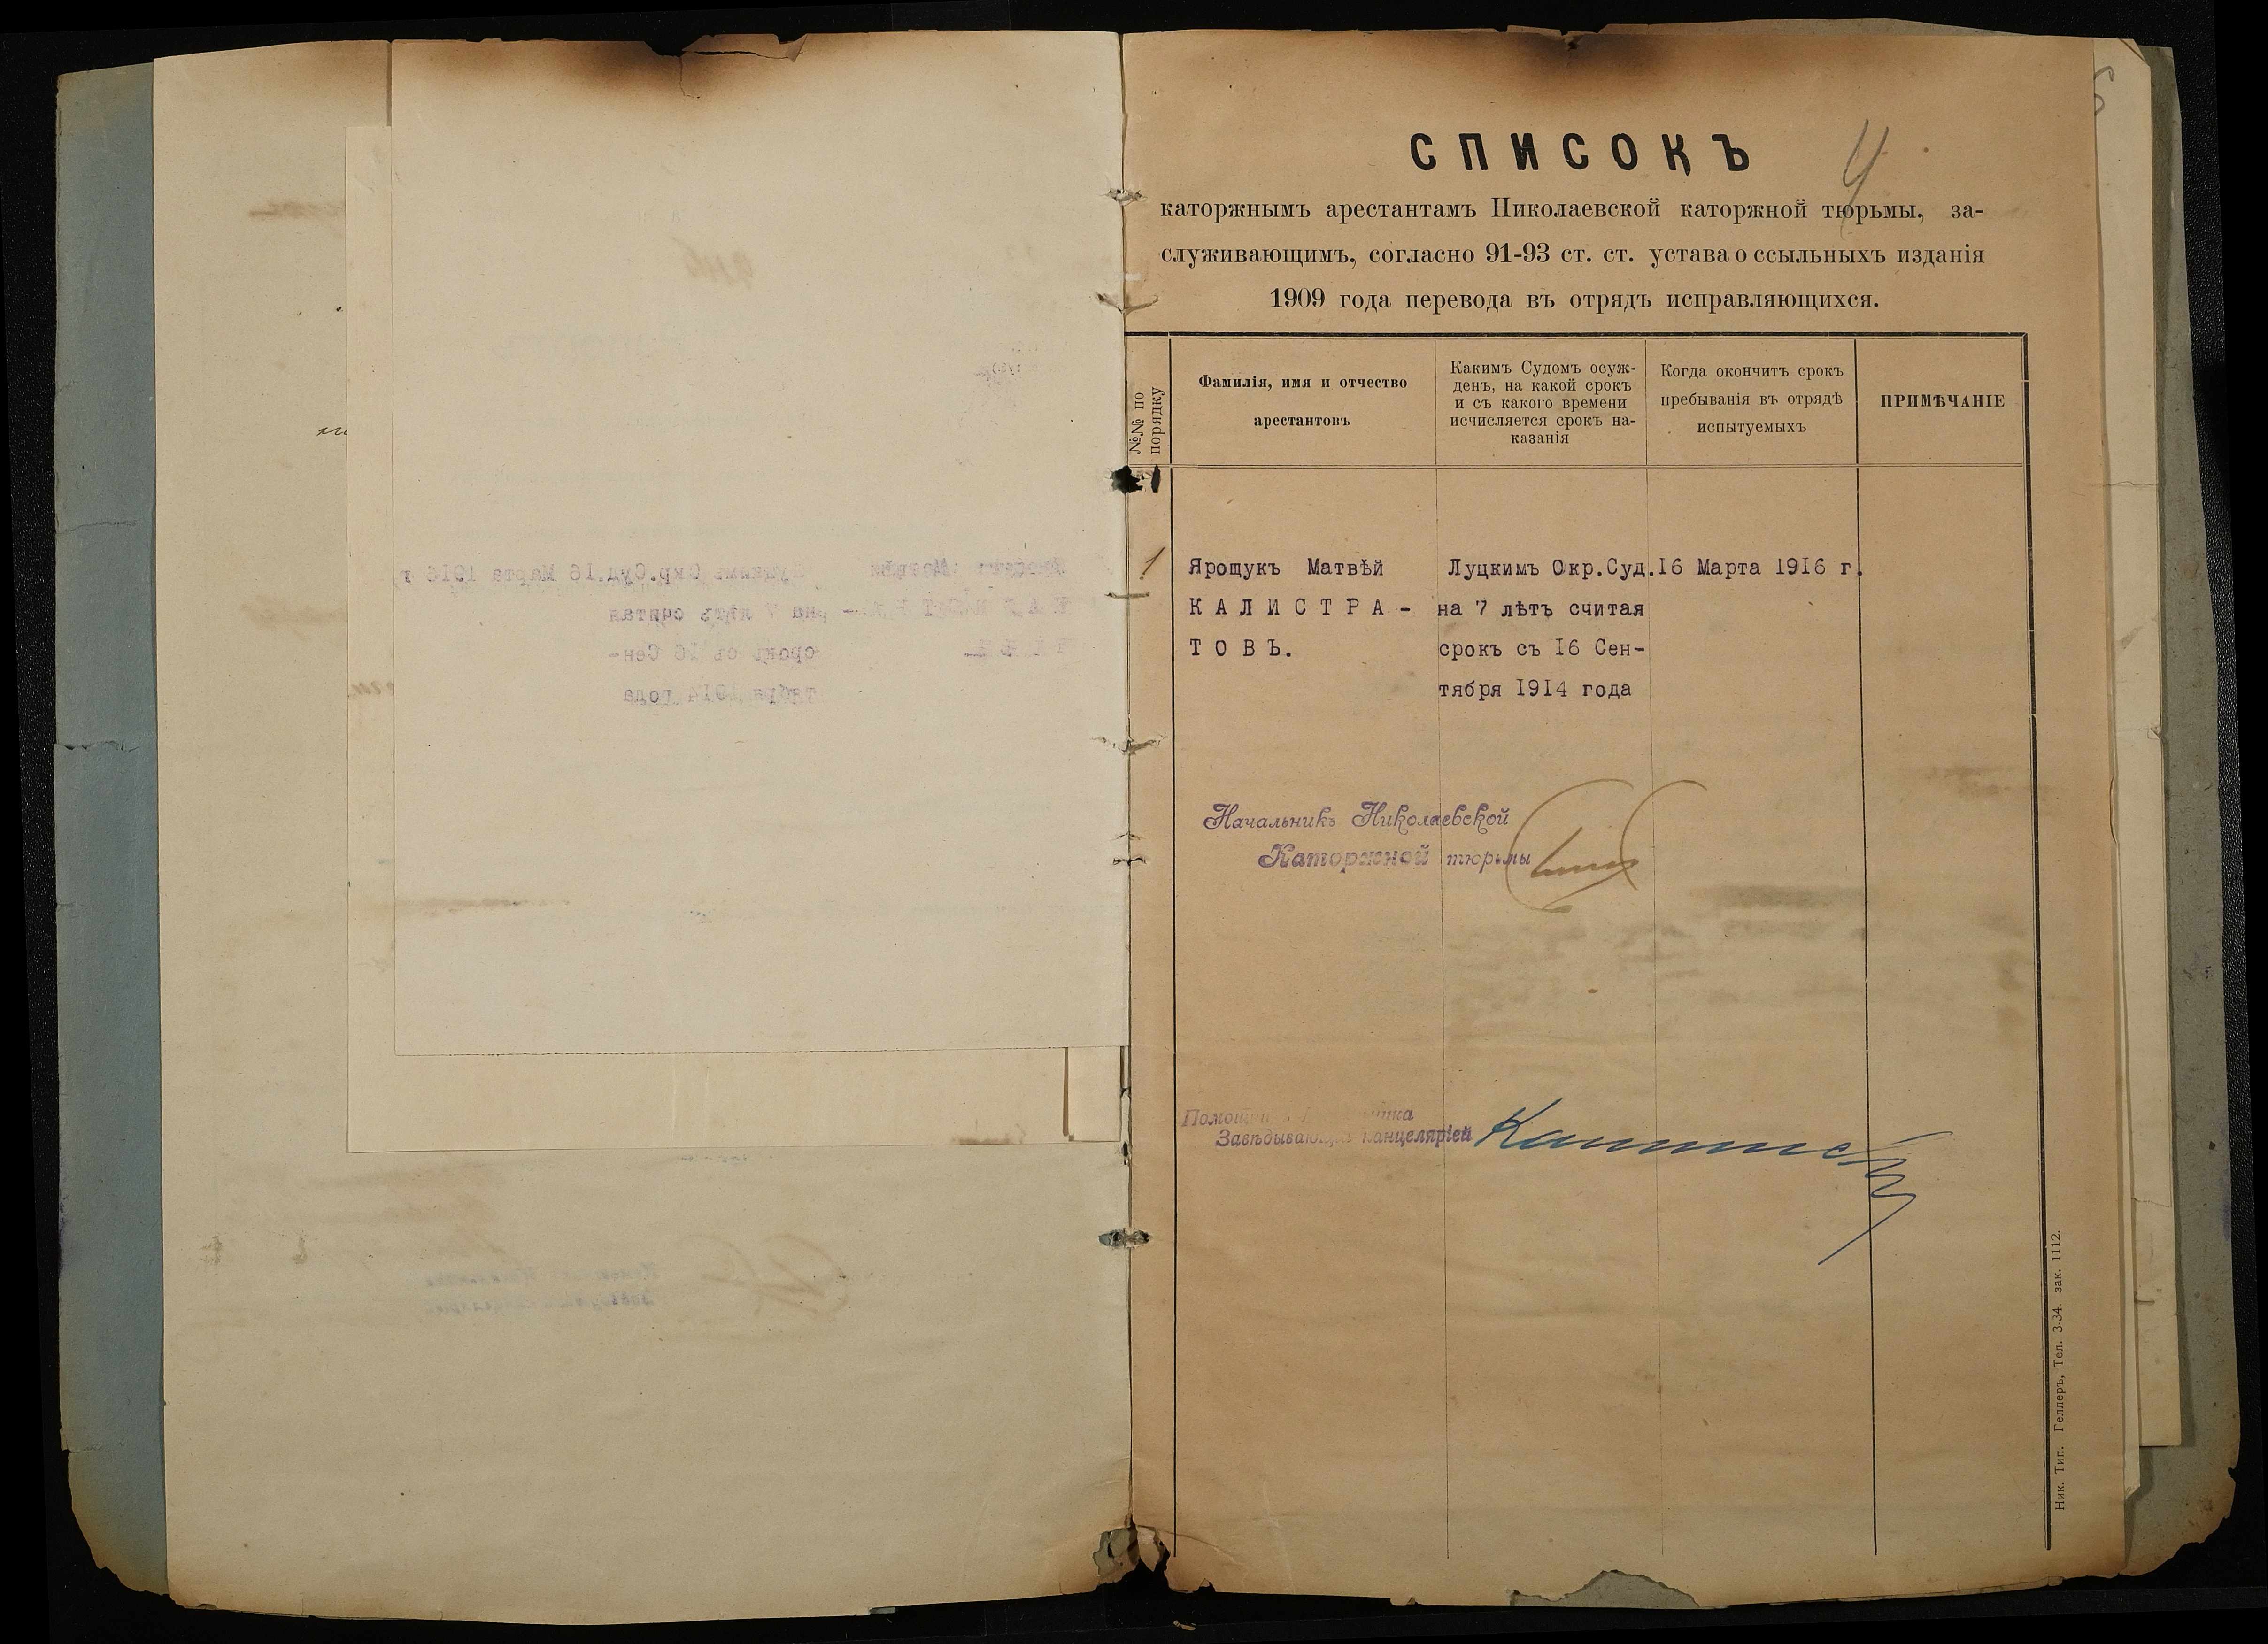 СПИСОКЪ
4
каторжнымъ арестантамъ Николаевской каторжной тюрьмы, за-
служивающимъ, согласно 91-93 ст. ст. устава о ссыльныхъ изданія
1909 года перевода въ отрядъ исправляющихся.
№№ по
порядку
Фамилія, имя и отчество
арестантовъ
Какимъ Судомъ осуж-
денъ, на какой срокъ
и съ какого времени
исчисляется срокъ на-
казанія
Когда окончитъ срокъ
пребыванія въ отрядѣ
испытуемыхъ
ПРИМѢЧАНІЕ
1
Ярощукъ Матвѣй
КАЛИСТРА-
ТОВЪ.
Луцкимъ Окр.Суд.
на 7 лѣтъ считая
срокъ съ 16 Сен-
тября 1914 года
16 Марта 1916 г.
Начальникъ Николаевской
Каторжной тюрьмы
Завѣдывающій канцеляріей
Ник. Тип. Геллеръ, Тел. 3-34. зак. 1112.